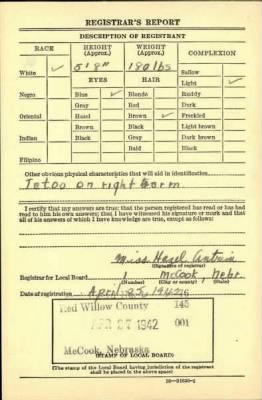 REGISTRAR'S REPORT
DESCRIPTION OF REGISTRANT
RACE HEIGHT (Approx.) WEIGHT (Approx.) COMPLEXION
White ✓ 5' 8" 180 lbs Sallow
EYES HAIR Light ✓
Negro Blue ✓ Blonde Ruddy
Gray Red Dark
Oriental Hazel Brown ✓ Freckled
Brown Black Light brown
Indian Black Gray Dark brown
Bald Black
Filipino
Other obvious physical characteristics that will aid in identification
Tatoo on right arm
I certify that my answers are true; that the person registered has read or has had
read to him his own answers; that I have witnessed his signature or mark and that
all of his answers of which I have knowledge are true, except as follows:
Miss Hazel
(Signature of registrar)
Registrar for Local Board 1 McCook, Nebr.
(Number) (City or county) (State)
Date of registration April 1942
Red Willow County 145
APR 27 1942 001
McCook, Nebraska
(STAMP OF LOCAL BOARD)
(The stamp of the Local Board having jurisdiction of the registrant
shall be placed in the above space)